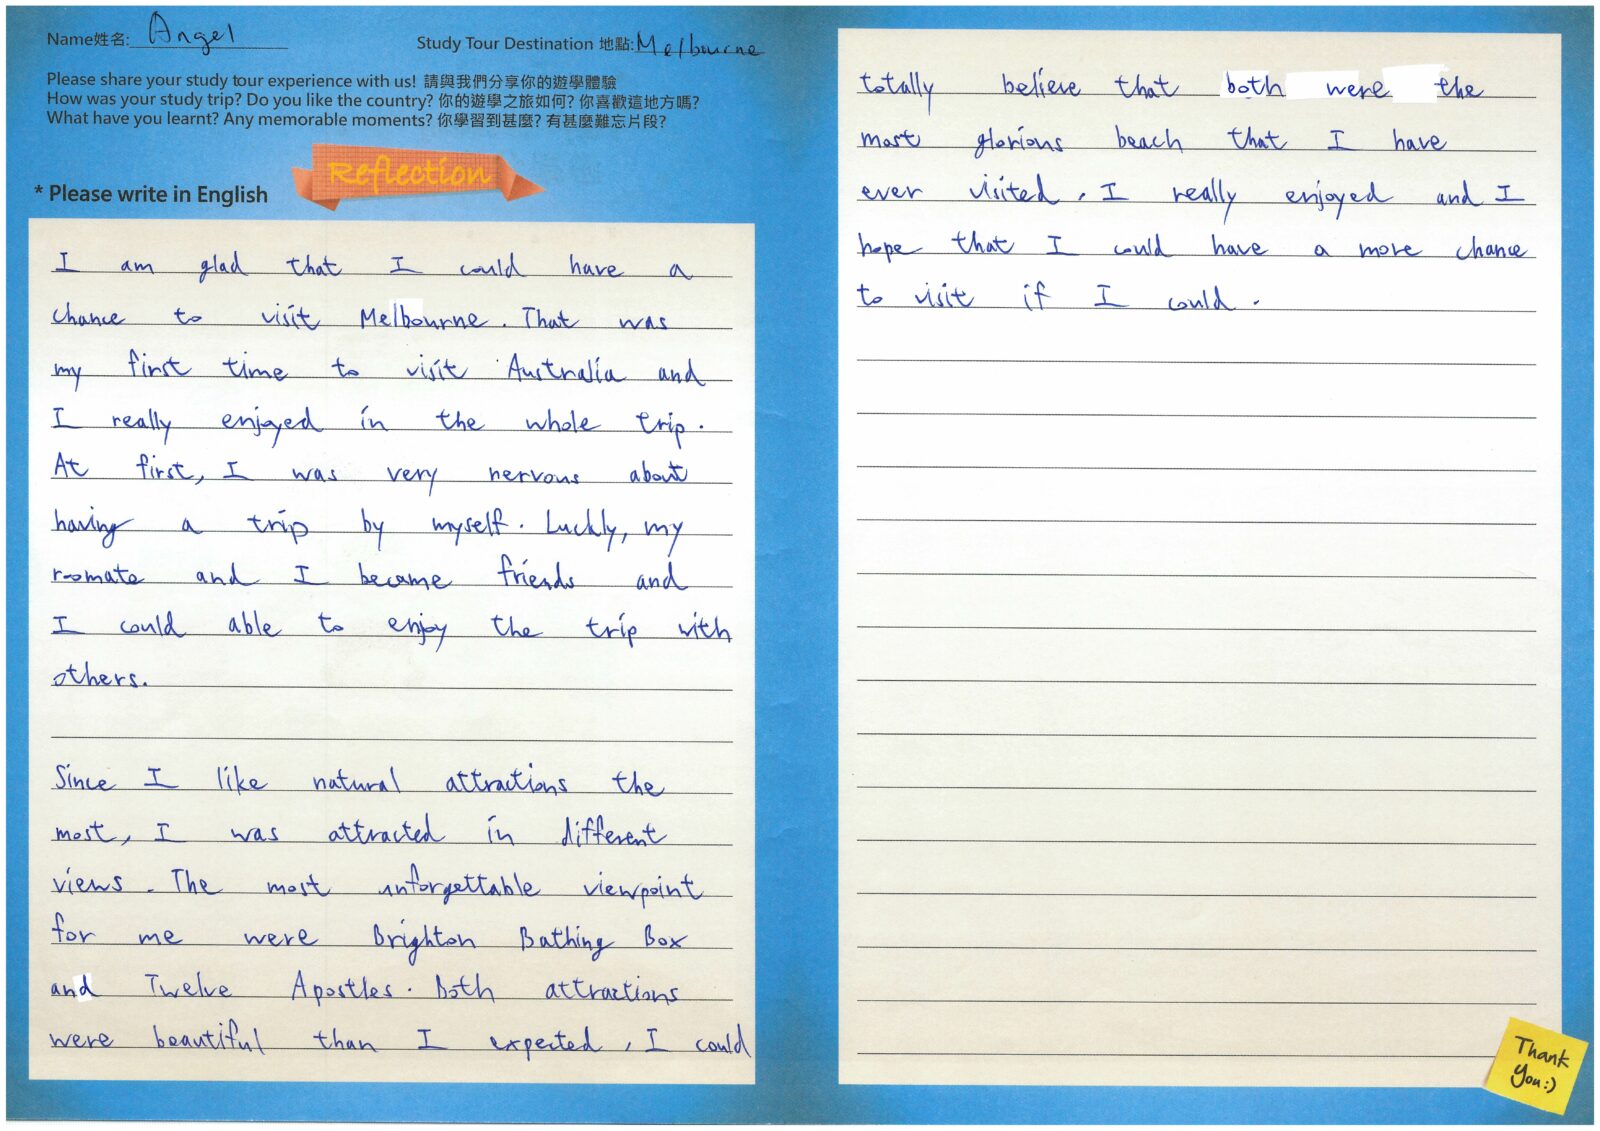 Name姓名: Angel
Study Tour Destination 地點: Melbourne
Please share your study tour experience with us! 請與我們分享你的遊學體驗
How was your study trip? Do you like the country? 你的遊學之旅如何? 你喜歡這地方嗎?
What have you learnt? Any memorable moments? 你學習到甚麼? 有甚麼難忘片段?
Reflection
* Please write in English
I am glad that I could have a
chance to visit Melbourne. That was
my first time to visit Australia and
I really enjoyed in the whole trip.
At first, I was very nervous about
having a trip by myself. Luckly, my
roomate and I became friends and
I could able to enjoy the trip with
others.
Since I like natural attractions the
most, I was attracted in different
views. The most unforgettable viewpoint
for me were Brighton Bathing Box
and Twelve Apostles. Both attractions
were beautiful than I expected, I could
totally believe that both were the
most glorious beach that I have
ever visited. I really enjoyed and I
hope that I could have a more chance
to visit if I could.
Thank
You:)